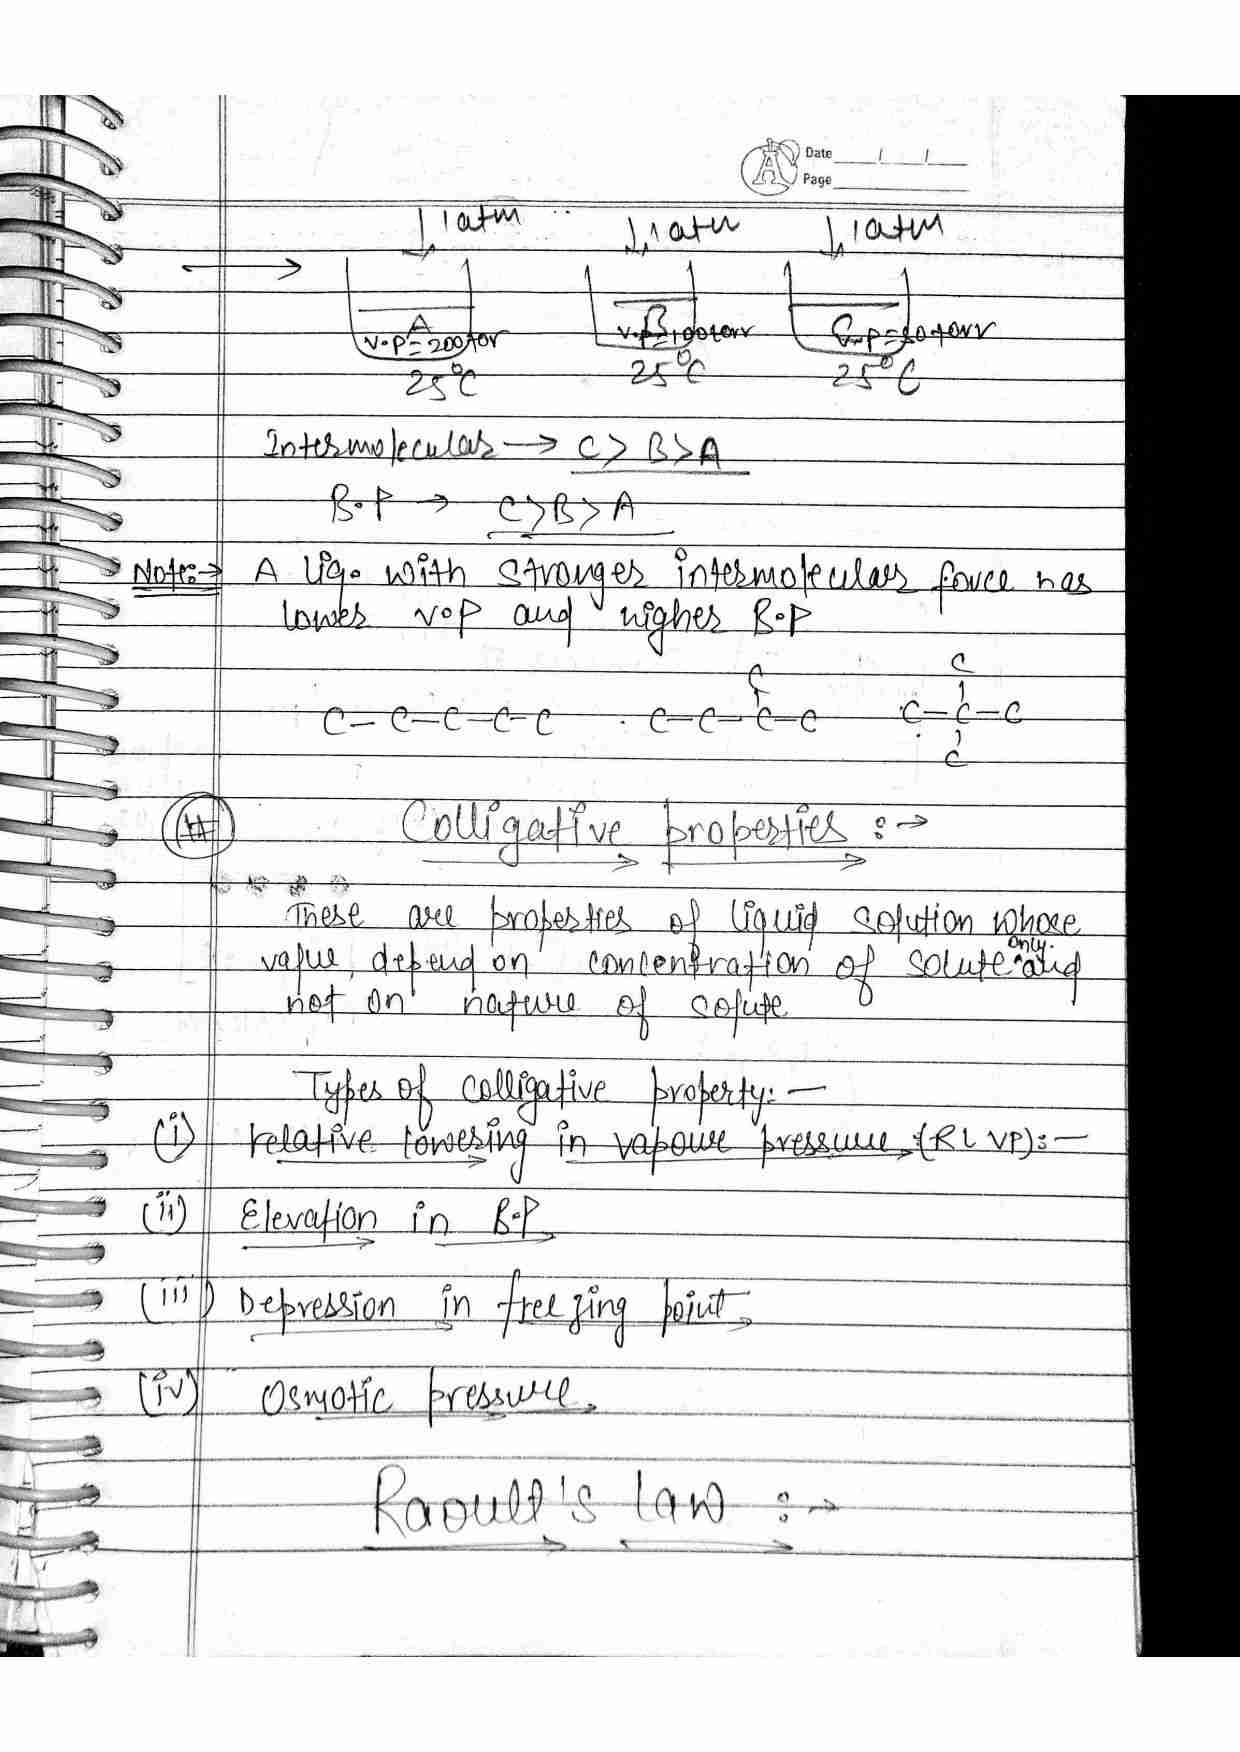 Date / /
Page
1 atm 1 atm 1 atm
A B C
v.p = 200 torr v.p = 100 torr
25°C 25°C 25°C
Intermolecular → C > B > A
B.P → C > B > A
Note:→ A liq. with stronger intermolecular force has
lower v.p and higher B.P
C C
C-C-C-C-C C-C-C-C C-C-C
C
# Colligative properties :→
These are properties of liquid solution whose
only.
value, depend on concentration of solute ^ and
not on nature of solute
Types of colligative property:-
(i) relative lowering in vapour pressure (RLVP):-
(ii) Elevation in B.P
(iii) Depression in freezing point
(iv) Osmotic pressure
Raoult's law :→